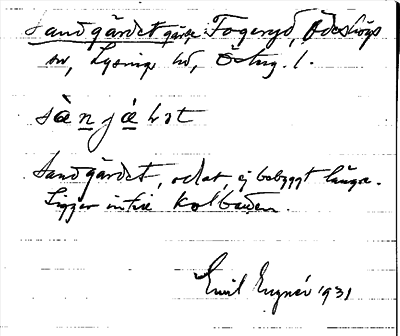 Sandgärdet gärde Fogeryd, Ödeshögs
sn, Lysings hd, Österg. l.
sàn̲ já̲ ɩət
Sandgärdet, odlat, ej bebyggt längre.
Ligger intill Kolbäcken.
Emil Engnér 1931